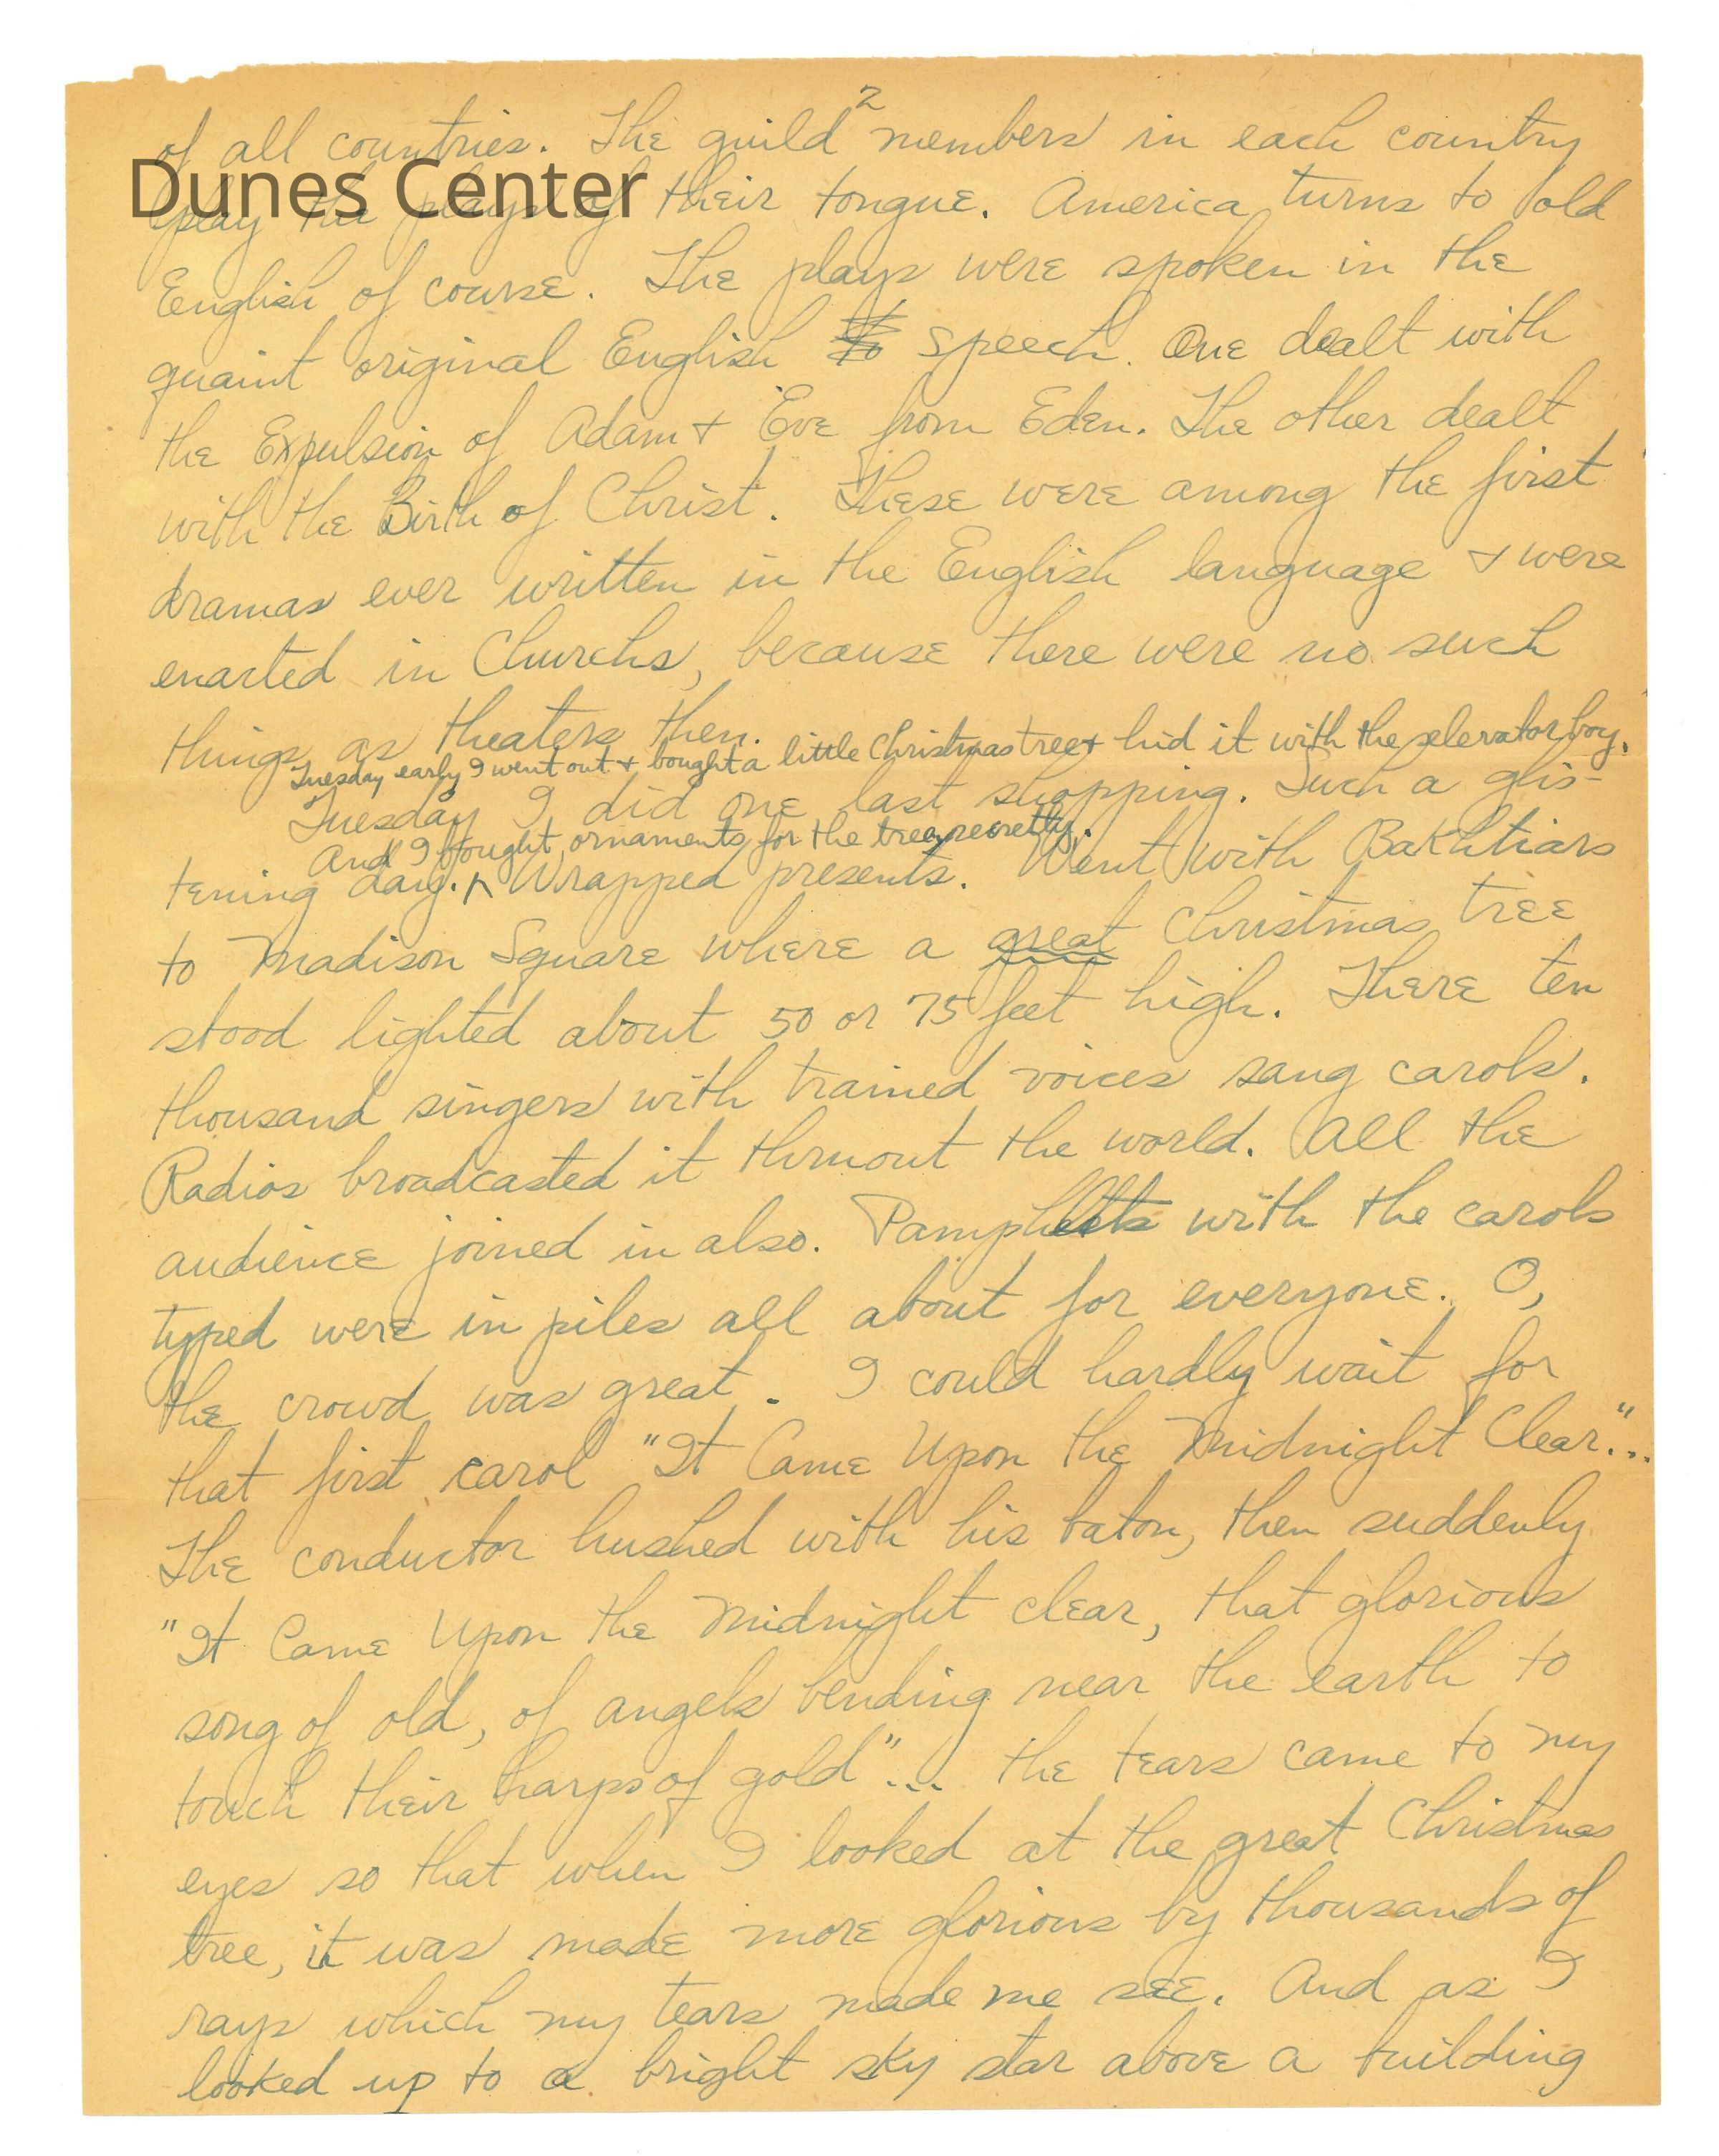 2
of all countries. The guild members in each country
Dunes Center
play the plays of their tongue. America turns to old
English of course. The plays were spoken in the
quaint original English to speech. One dealt with
the Expulsion of Adam + Eve from Eden. The other dealt
with the Birth of Christ. These were among the first
dramas ever written in the English language + were
enacted in Churchs, because there were no such
things as theaters then.
Tuesday early I went out + bought a little Christmas tree + hid it with the elevator boy.
Tuesday I did one last shopping. Such a glis-
And I bought ornaments for the tree, secretly.
tening day. ^ Wrapped presents. Went with Bakhtiars
to Madison Square where a great Christmas tree
stood lighted about 50 or 75 feet high. There ten
thousand singers with trained voices sang carols.
Radios broadcasted it thruout the world. All the
audience joined in also. Pamphlets with the carols
typed were in piles all about for everyone. O,
the crowd was great. I could hardly wait for
that first carol "It Came Upon the Midnight Clear."..
The conductor hushed with his baton, then suddenly
"It Came Upon the Midnight clear, that glorious
song of old, of angels bending near the earth to
touch their harps of gold"... the tears came to my
eyes so that when I looked at the great Christmas
tree, it was made more glorious by thousands of
rays which my tears made me see. And as I
looked up to a bright sky star above a building